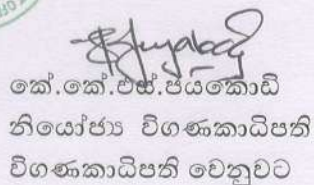 කේ.කේ.එස්.ජයකොඩි
නියෝජ්‍ය විගණකාධිපති
විගණකාධිපති වෙනුවට